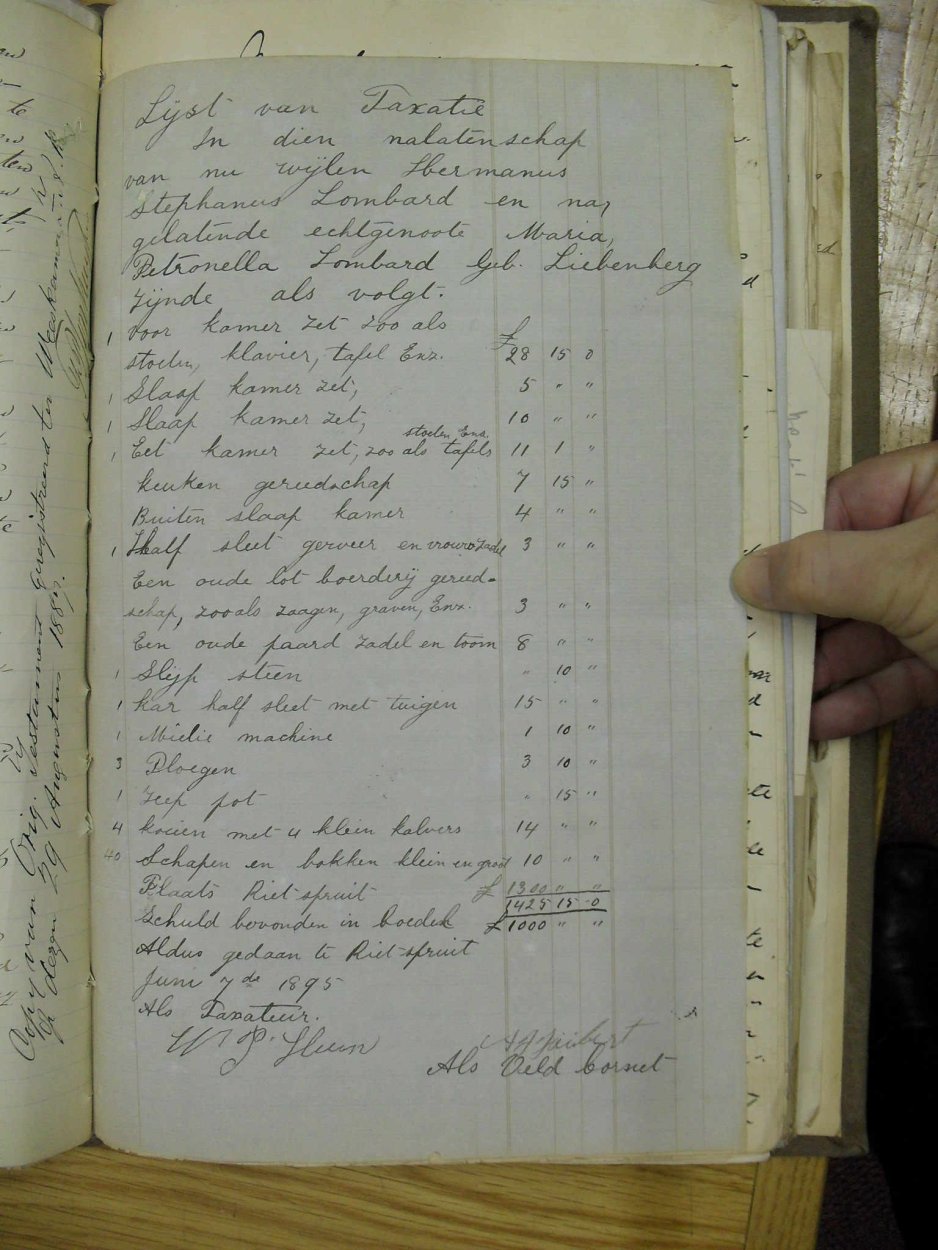 Lijst van Taxatie
In dien nalatenschap
van nu wijlen Hermanus
Stephanus Lombard en na,
gelatende echtgenoote Maria,
Petronella Lombard Geb. Liebenberg
zijnde als volgt.
1 Voor kamer zet zoo als
stoelen, klavier, tafel Enz. £ 28 15 0
1 Slaap kamer zet, 5 " "
1 Slaap kamer zet, 10 " "
stoelen Enz.
1 Eet kamer zet, zoo als tafels 11 1 "
keuken gereedschap 7 15 "
Buiten slaap kamer 4 " "
1 Half sleet gerweer en vrouw zadel 3 " "
Een oude lot boerderij gereed-
schap, zooals zaagen, graven, Enz. 3 " "
Een oude paard zadel en toom 8 " "
1 Slijp steen " 10 "
1 kar half sleet met tuigen 15 " "
1 Mielie machine 1 10 "
3 Ploegen 3 10 "
1 Zeep pot " 15 "
4 koeien met 4 klein kalvers 14 " "
40 Schapen en bokken klein en groot 10 " "
Plaats Riet spruit £ 1300 " "
1425 15 0
Schuld bevonden in boedel £ 1000 " "
Aldus gedaan te Riet spruit
Juni 7de 1895
Als Taxateur.
Als Veld Cornet
Copy van Orig. Testament Geregistreerd ter Weeskamer
op dezen 29 Augustus 1889.